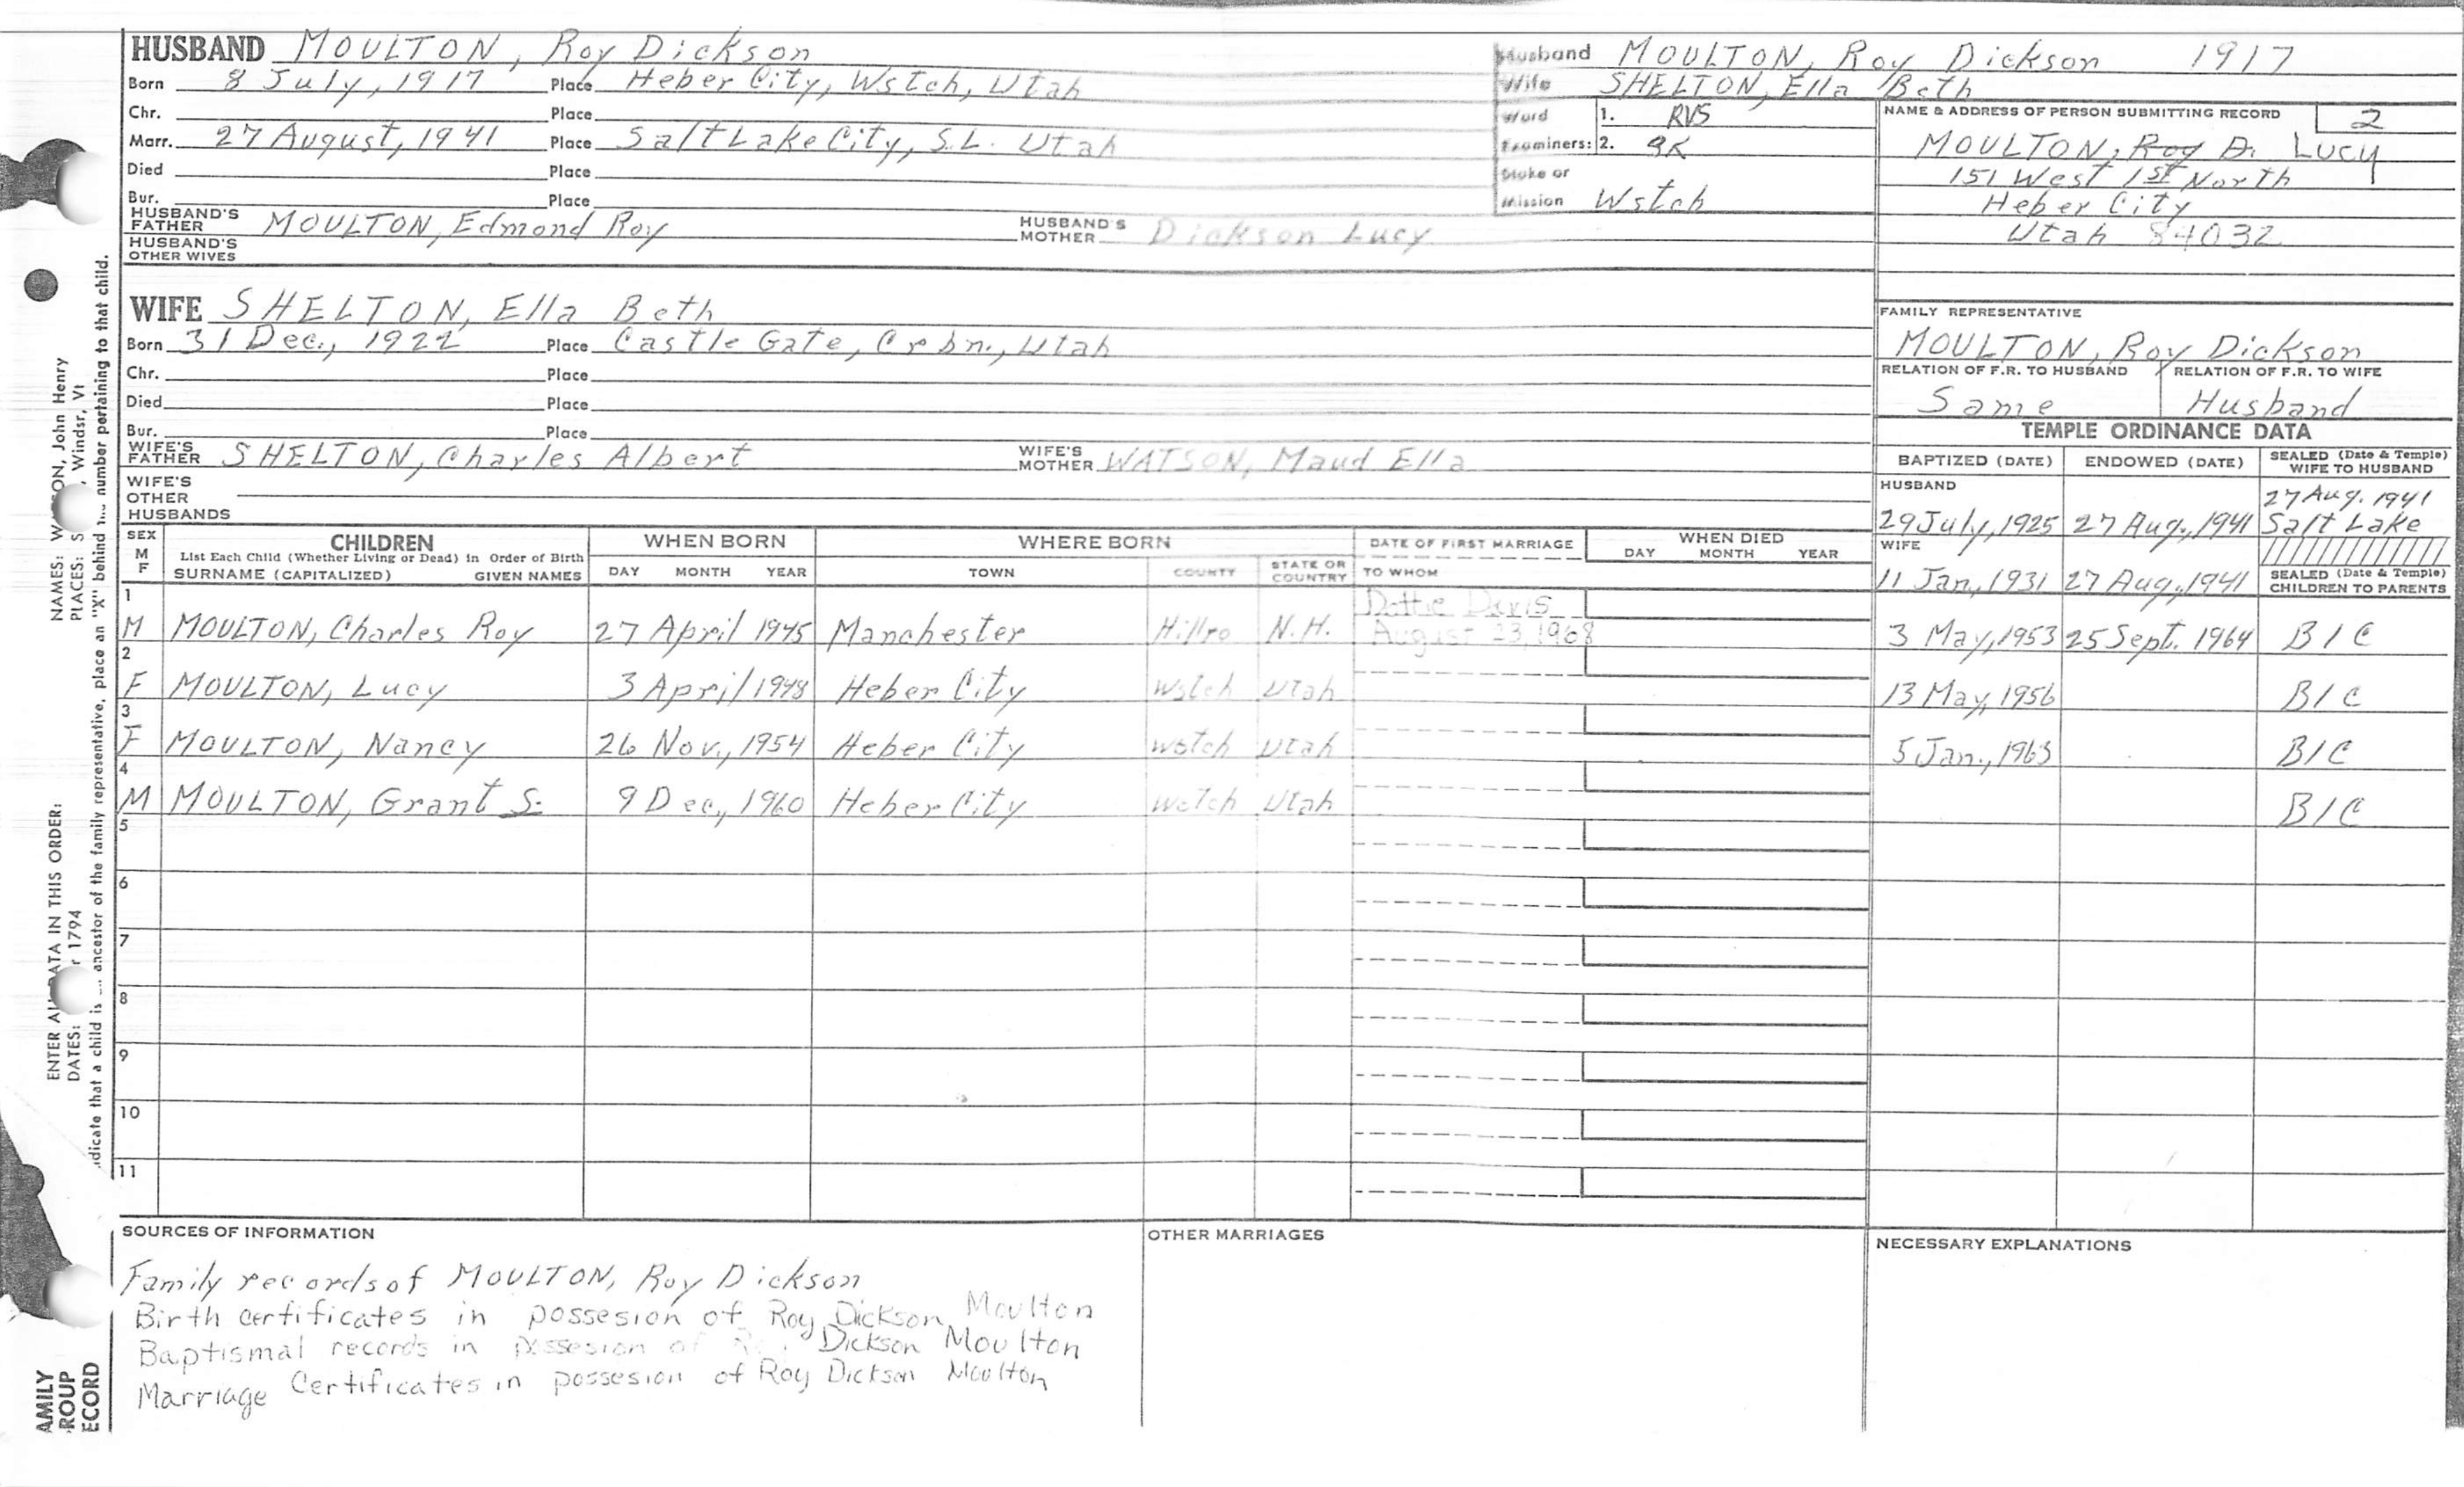 HUSBAND MOULTON, Roy Dickson
Born 8 July, 1917 Place Heber City, Wstch, Utah
Chr. Place
Marr. 27 August, 1941 Place Salt Lake City, S.L. Utah
Died Place
Bur. Place
HUSBAND'S FATHER MOULTON, Edmond Roy HUSBAND'S MOTHER Dickson Lucy
HUSBAND'S OTHER WIVES
Husband MOULTON, Roy Dickson 1917
Wife SHELTON, Ella Beth
Ward 1. RVS
Examiners: 2.
Stake or Mission Wstch
NAME & ADDRESS OF PERSON SUBMITTING RECORD 2
MOULTON, Roy D. Lucy
151 West 1st North
Heber City
Utah 84032
WIFE SHELTON, Ella Beth
Born 31 Dec., 1922 Place Castle Gate, Crbn., Utah
Chr. Place
Died Place
Bur. Place
WIFE'S FATHER SHELTON, Charles Albert WIFE'S MOTHER WATSON, Maud Ella
WIFE'S OTHER HUSBANDS
FAMILY REPRESENTATIVE
MOULTON, Roy Dickson
RELATION OF F.R. TO HUSBAND RELATION OF F.R. TO WIFE
Same Husband
TEMPLE ORDINANCE DATA
BAPTIZED (DATE) ENDOWED (DATE) SEALED (Date & Temple) WIFE TO HUSBAND
HUSBAND
29 July, 1925 27 Aug., 1941 27 Aug. 1941 Salt Lake
WIFE
11 Jan., 1931 27 Aug., 1941 SEALED (Date & Temple) CHILDREN TO PARENTS
SEX M F CHILDREN WHEN BORN WHERE BORN DATE OF FIRST MARRIAGE WHEN DIED
List Each Child (Whether Living or Dead) in Order of Birth
SURNAME (CAPITALIZED) GIVEN NAMES DAY MONTH YEAR TOWN COUNTY STATE OR COUNTRY TO WHOM DAY MONTH YEAR
1 M MOULTON, Charles Roy 27 April 1945 Manchester Hillro N.H. Dottie Davis August 23, 1968 3 May, 1953 25 Sept. 1964 B I C
2 F MOULTON, Lucy 3 April 1948 Heber City Wstch Utah 13 May, 1956 B I C
3 F MOULTON, Nancy 26 Nov., 1954 Heber City Wstch Utah 5 Jan., 1963 B I C
4 M MOULTON, Grant S. 9 Dec., 1960 Heber City Wstch Utah B I C
5
6
7
8
9
10
11
SOURCES OF INFORMATION
Family records of MOULTON, Roy Dickson
Birth certificates in possesion of Roy Dickson Moulton
Baptismal records in possesion of Dickson Moulton
Marriage Certificates in possesion of Roy Dickson Moulton
OTHER MARRIAGES
NECESSARY EXPLANATIONS
NAMES: John Henry
PLACES: Windsr, Vt
number pertaining to that child.
ENTER DATA IN THIS ORDER:
DATES: 1794
that a child is ancestor of the family representative, place an "X" behind
AMILY
ROUP
ECORD